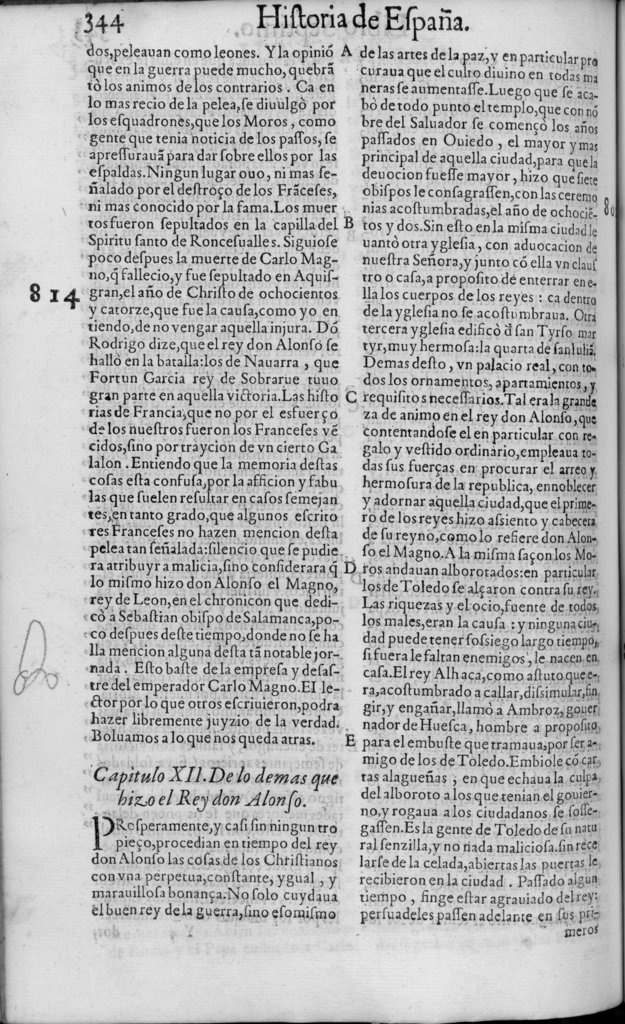 344
Historia de España.
dos,peleauan como leones. Y la opinió
que en la guerra puede mucho, quebrã
tò los animos de los contrarios . Ca en
lo mas recio de la pelea,se diuulgò por
los esquadrones,que los Moros , como
gente que tenia noticia de los passos, se
apressurauã para dar sobre ellos por las
espaldas.Ningun lugar ouo, ni mas se-
ñalado por el destroço de los Frãceses,
ni mas conocido por la fama.Los muer
tos fueron sepultados en la capilla del
Spiritu santo de Roncesualles. Siguiose
poco despues la muerte de Carlo Mag-
no,q̃ fallecio,y fue sepultado en Aquis-
814
gran,el año de Christo de ochocientos
y catorze,que fue la causa,como yo en
tiendo,de no vengar aquella injura. Dõ
Rodrigo dize,que el rey don Alonso se
hallò en la batalla:los de Nauarra , que
Fortun Garcia rey de Sobrarue tuuo
gran parte en aquella victoria.Las histo
rias de Francia,que no por el esfuerço
de los nuestros fueron los Franceses vẽ
cidos,sino por traycion de vn cierto Ga
lalon . Entiendo que la memoria destas
cosas esta confusa,por la afficion y fabu
las que suelen resultar en casos semejan
tes,en tanto grado,que algunos escrito
res Franceses no hazen mencion desta
pelea tan señalada:silencio que se pudie
ra atribuyr a malicia,sino considerara q̃
lo mismo hizo don Alonso el Magno,
rey de Leon,en el chronicon que dedi-
cò a Sebastian obispo de Salamanca,po-
co despues deste tiempo,donde no se ha
lla mencion alguna desta tã notable jor-
nada . Esto baste de la empresa y desas-
tre del emperador Carlo Magno.El le-
ctor por lo que otros escriuieron,podra
hazer libremente juyzio de la verdad.
Boluamos a lo que nos queda atras.
Capitulo XII. De lo demas que
hizo el Rey don Alonso.
PRosperamente,y casi sin ningun tro
pieço,procedian en tiempo del rey
don Alonso las cosas de los Christianos
con vna perpetua,constante, ygual , y
marauillosa bonança.No solo cuydaua
el buen rey de la guerra,sino eso mismo
A
de las artes de la paz,y en particular pro
curaua que el culto diuino en todas ma
neras se aumentasse.Luego que se aca-
bò de todo punto el templo,que con nõ
bre del Saluador se començò los años
passados en Ouiedo , el mayor y mas
principal de aquella ciudad,para que la
deuocion fuesse mayor, hizo que siete
obispos le consagrassen,con las ceremo
80
nias acostumbradas,el año de ochociẽ-
B
tos y dos.Sin esto en la misma ciudad le
uantò otra yglesia, con aduocacion de
nuestra Señora,y junto cõ ella vn claus
tro o casa,a proposito de enterrar en e-
lla los cuerpos de los reyes : ca dentro
de la yglesia no se acostumbraua. Otra
tercera yglesia edificò d̃ san Tyrso mar
tyr,muy hermosa:la quarta de san Iuliã.
Demas desto , vn palacio real, con to-
dos los ornamentos, apartamientos, y
C
requisitos necessarios.Tal era la grande
za de animo en el rey don Alonso, que
contentandose el en particular con re-
galo y vestido ordinario,empleaua to-
das sus fuerças en procurar el arreo y
hermosura de la republica, ennoblecer
y adornar aquella ciudad,que el prime-
ro de los reyes hizo assiento y cabecera
de su reyno,como lo refiere don Alon-
so el Magno.A la misma saçon los Mo-
D
ros andauan alborotados:en particular
los de Toledo se alçaron contra su rey.
Las riquezas y el ocio,fuente de todos
los males,eran la causa : y ninguna ciu-
dad puede tener sossiego largo tiempo,
si fuera le faltan enemigos, le nacen en
casa.El rey Alhaca,como astuto que e-
ra,acostumbrado a callar,dissimular,fin
gir,y engañar,llamò a Ambroz, gouer
nador de Huesca, hombre a proposito
E
para el embuste que tramaua,por ser a-
migo de los de Toledo.Embiole cõ car
tas alagueñas , en que echaua la culpa
del alboroto a los que tenian el gouier-
no,y rogaua a los ciudadanos se sosse-
gassen.Es la gente de Toledo de su natu
ral senzilla, y no nada maliciosa.sin rece
larse de la celada,abiertas las puertas le
recibieron en la ciudad . Passado algun
tiempo , finge estar agrauiado del rey:
persuadeles passen adelante en sus pri-
meros